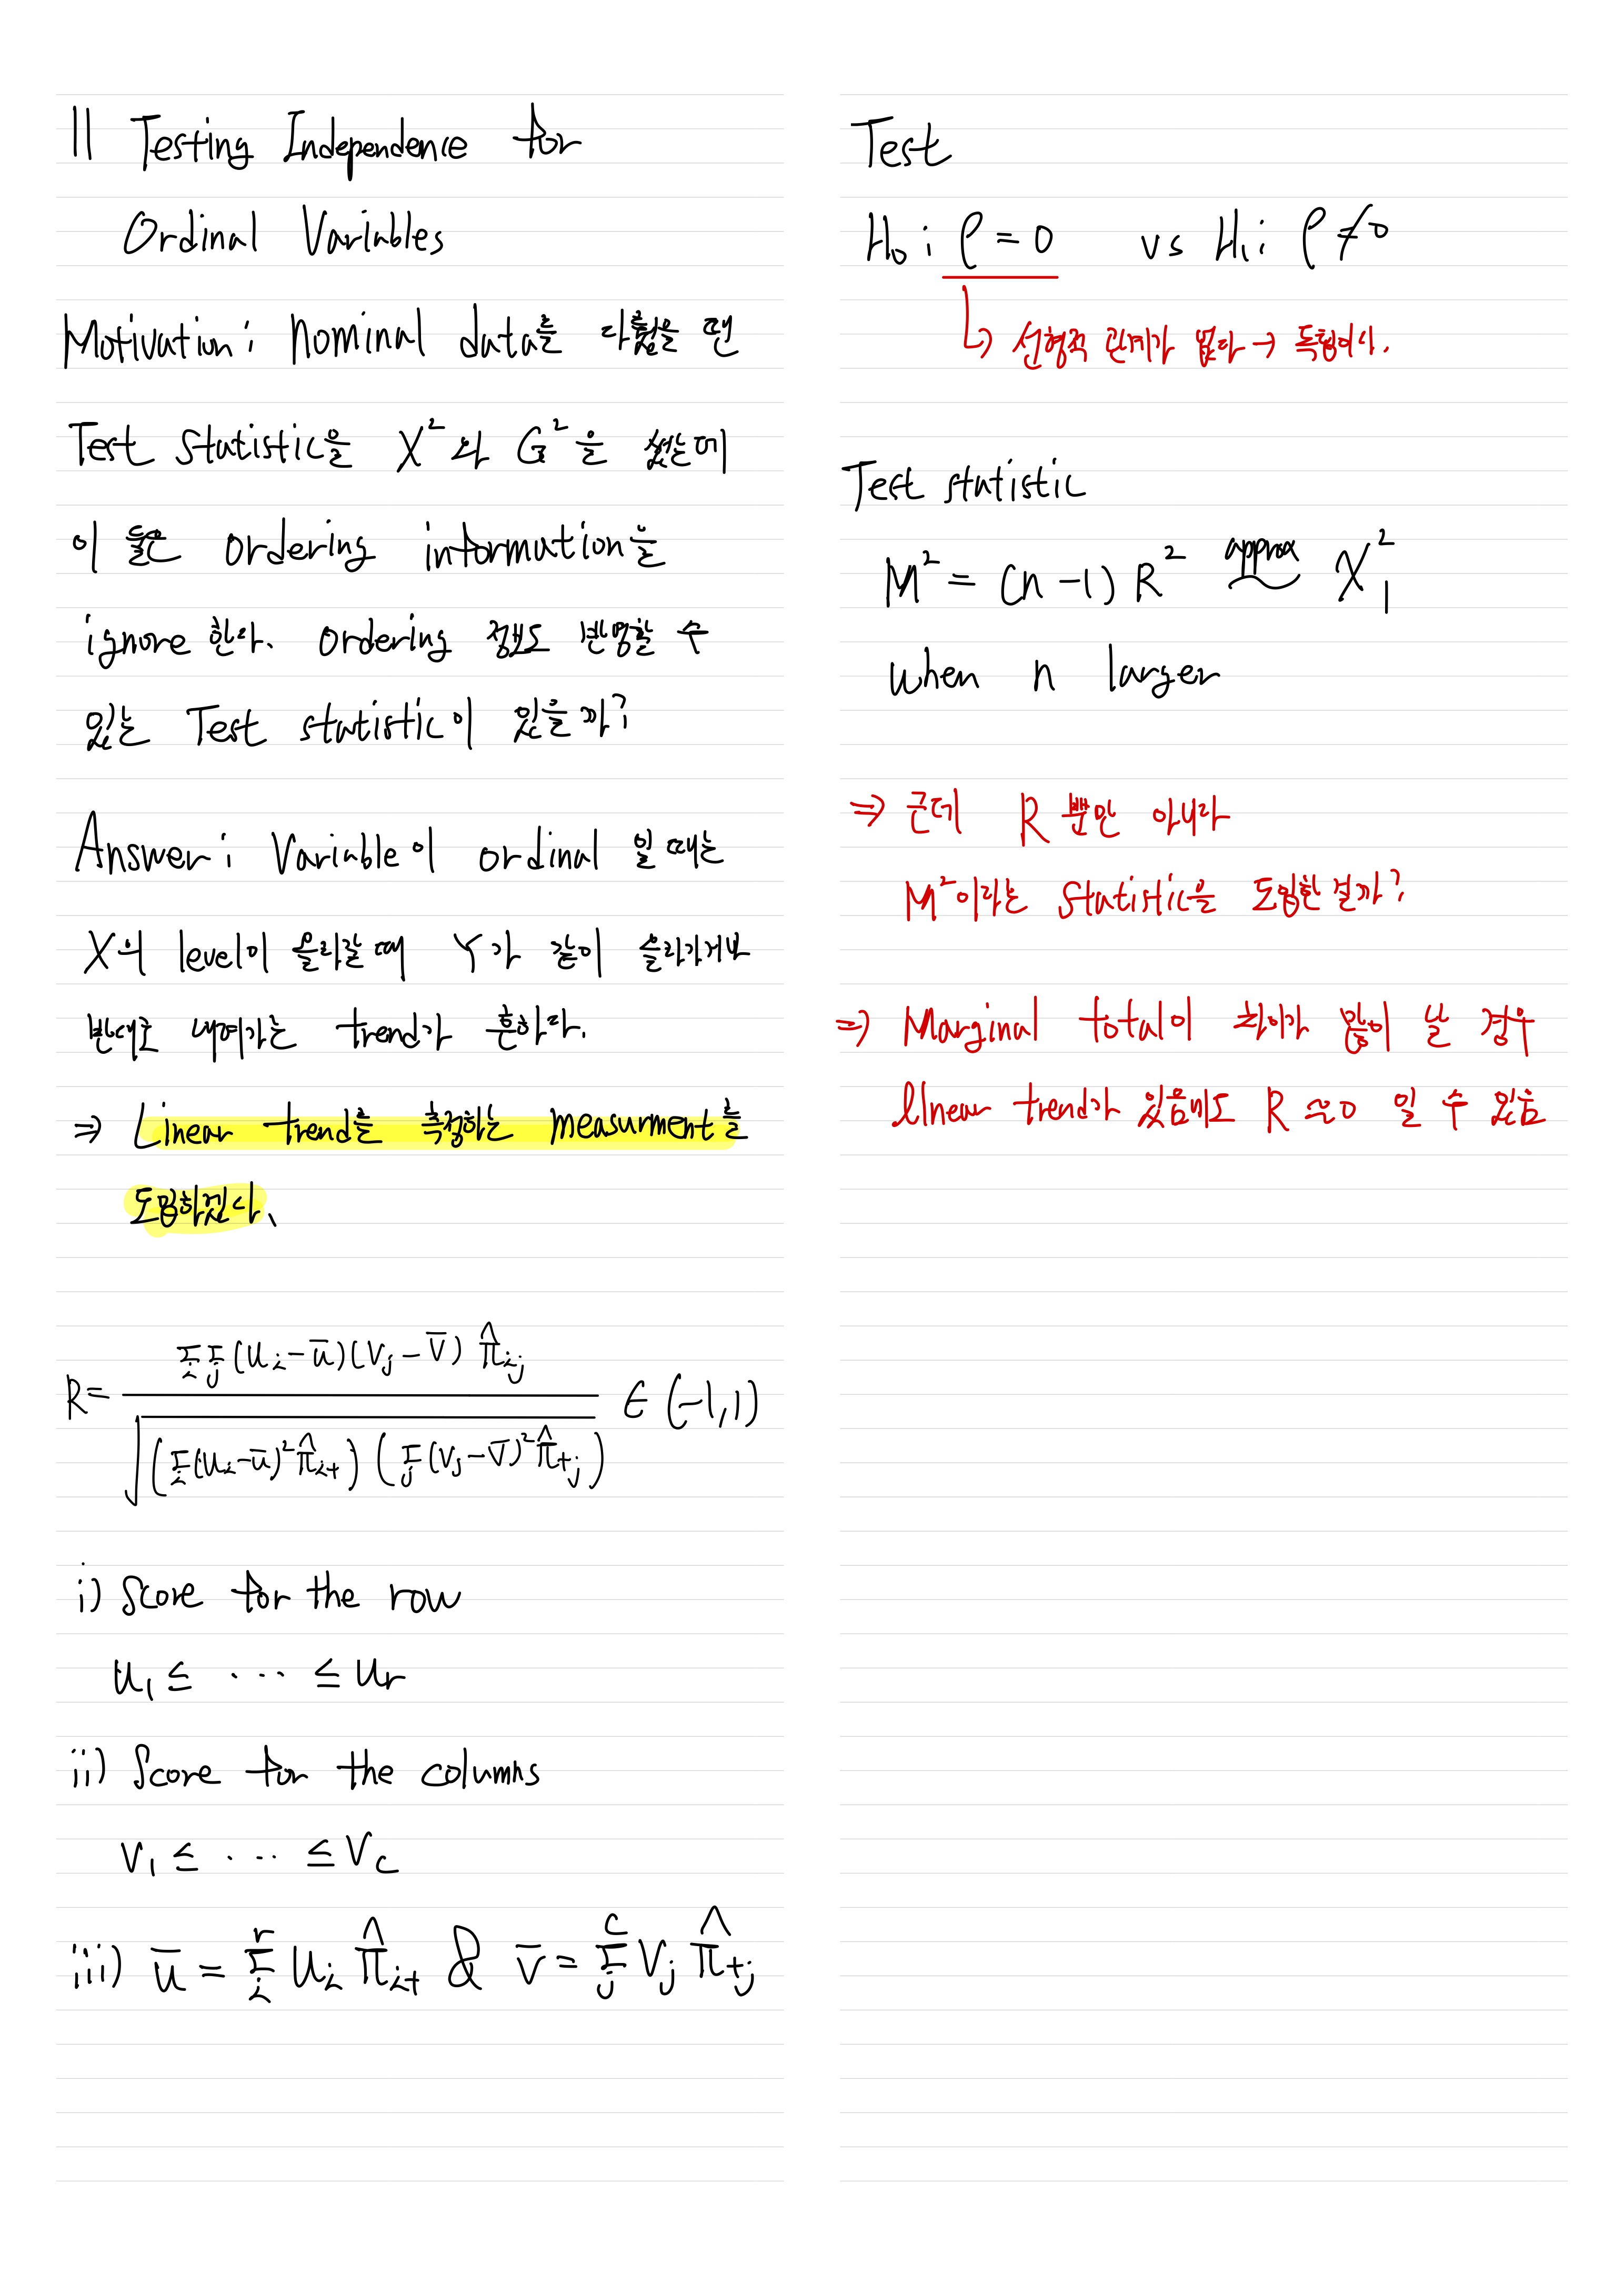 11 Testing Independence for
Ordinal Variables
Motivation : Nominal data를 다뤘을 땐
Test statistic을 X² 와 G² 을 썼는데
이 들은 ordering information을
ignore 한다. ordering 정보도 반영할 수
있는 Test statistic이 있을까?
Answer : Variable이 ordinal 일 때는
X의 level이 올라갈때 Y가 같이 올라가거나
반대로 내려가는 trend가 흔하다.
⇒ Linear trend를 측정하는 measurment를
도입하겠다.
R = ΣᵢΣⱼ(uᵢ-ū)(vⱼ-v̄) π̂ᵢⱼ / √((Σᵢ(uᵢ-ū)²π̂ᵢ₊)(Σⱼ(vⱼ-v̄)²π̂₊ⱼ)) ∈ (-1,1)
i) Score for the row
u₁ ≤ ... ≤ uᵣ
ii) Score for the columns
v₁ ≤ ... ≤ v_c
iii) ū = Σᵢʳ uᵢ π̂ᵢ₊ & v̄ = Σⱼᶜ vⱼ π̂₊ⱼ
Test
H₀ : ρ = 0 vs H₁ : ρ ≠ 0
↳ 선형적 관계가 없다 → 독립이다.
Test statistic
M² = (n-1) R² approx ~ X²₁
when n larger
⇒ 근데 R 뿐만 아니라
M²이라는 statistic을 도입한 걸까?
⇒ Marginal total이 차이가 많이 날 경우
linear trend가 있음에도 R ≈ 0 일 수 있음